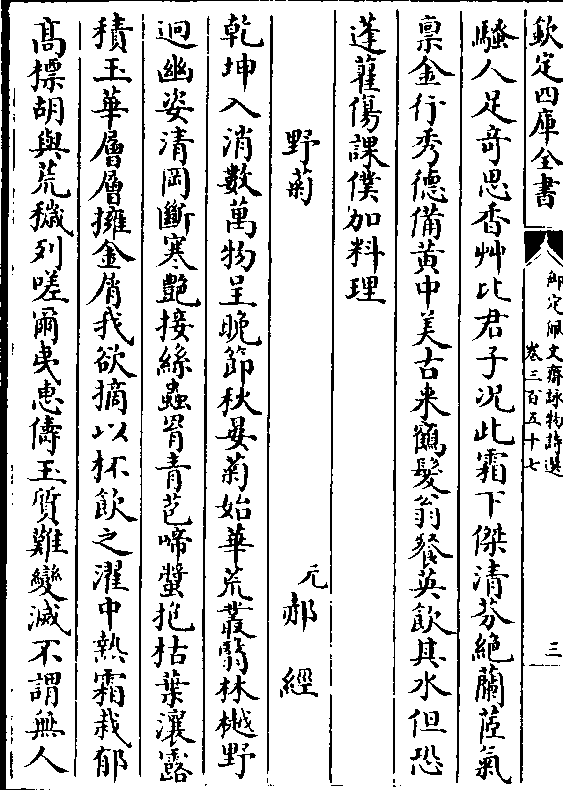 欽定四庫全書
御定佩文齋詠物詩選
卷三百五十七
三
騷人足竒思香艸比君子況此霜下傑清芬絕蘭茝氣
禀金行秀德備黃中美古来鶴髮翁餐英飲其水但恐
蓬藋傷課僕加料理
野菊
元郝經
乾坤入消數萬物呈晚節秋晏菊始華荒叢翳林樾野
迥幽姿清岡斷寒艶接絲蟲胃青芭啼螿抱枯葉瀼露
積玉華層層擁金屑我欲摘以杯飲之濯中熱霜栽郁
髙標胡與荒穢列嗟爾夷惠儔玉質難變滅不謂無人